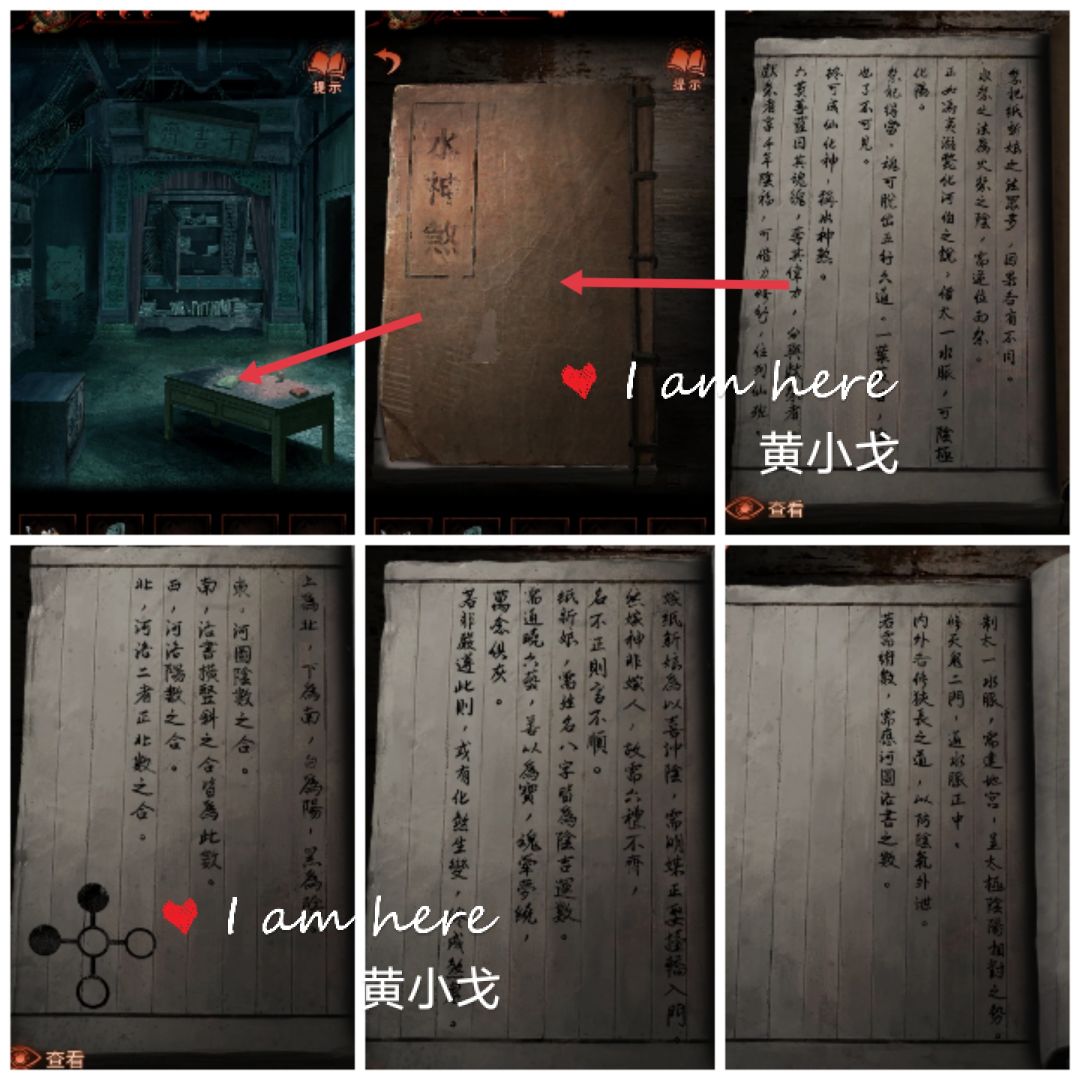 提示
水神煞
提示
祭祀紙新娘之法眾多，因果各有不同。
水祭之法為火祭之陰，需逆位而祭。
正如馮夷溺斃化河伯之說，借太一水脈，可陰極
化陽。
祭祀得當，魂可脫出五行久道。一葉
也了不可見。
終可成仙化神，稱水神煞。
六莫菩薩因其魂魄，奪其偉力，分與獻祭者
獻祭者享千年陰福，可借力修行，位列仙班。
I am here
黄小戈
查看
上為北，下為南，白為陽，黑為陰
東。河圖陰數之合。
南，洛書橫豎斜之合皆為此數。
西，河洛陽數之合。
北，河洛二者正北數之合。
查看
I am here
黄小戈
嫁紙新娘為以喜沖陰，需明媒正娶擡轎入門。
然嫁神非嫁人，故需六禮不齊，
名不正則言不順。
紙新娘，需姓名八字皆為陰吉運數。
需通曉六藝，善以為寶，魂牽夢繞，
萬念俱灰。
若非嚴遵此則，或有化煞生變，成煞
制太一水脈，需建地宮，呈太極陰陽相對之勢。
修天鬼二門，通水脈正中。
內外各修狹長之道，以防陰氣外泄。
若需術數，需應河圖洛書之數。